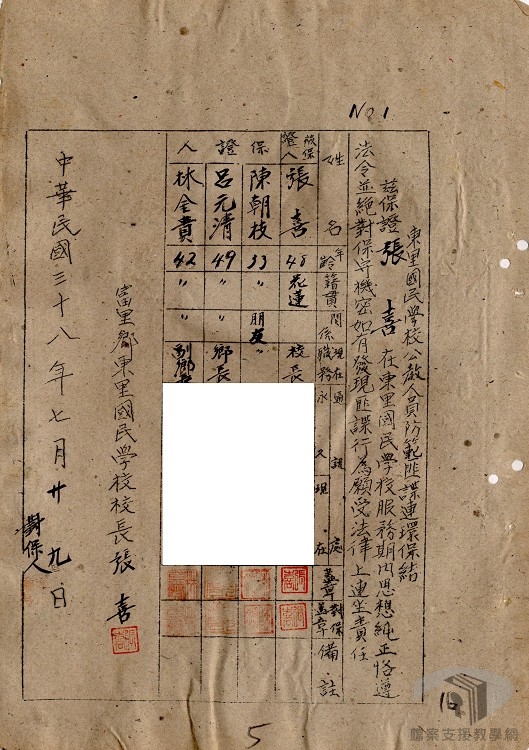 No 1
東里國民學校公教人員防範匪諜連環保結
茲保證張喜在東里國民學校服務期內思想純正恪遵
法令並絕對保守機密如有發現匪諜行為願受法律上連坐責任
姓名 年齡 籍貫 關係 現在職務 通訊處 永久 現在 蓋章 對保蓋章 備註
被保證人 張喜 48 花蓮 校長
保證人
陳朝枝 33 〃 朋友
呂元清 49 〃 〃 鄉長
林金貴 42 〃 〃 副鄉長
富里鄉東里國民學校校長張喜
中華民國三十八年七月廿九日
對保人
5
16
檔案支援教學網